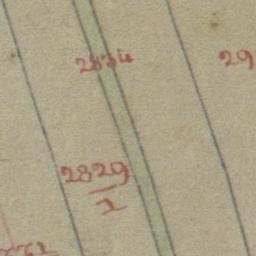 2834
29
2829
1